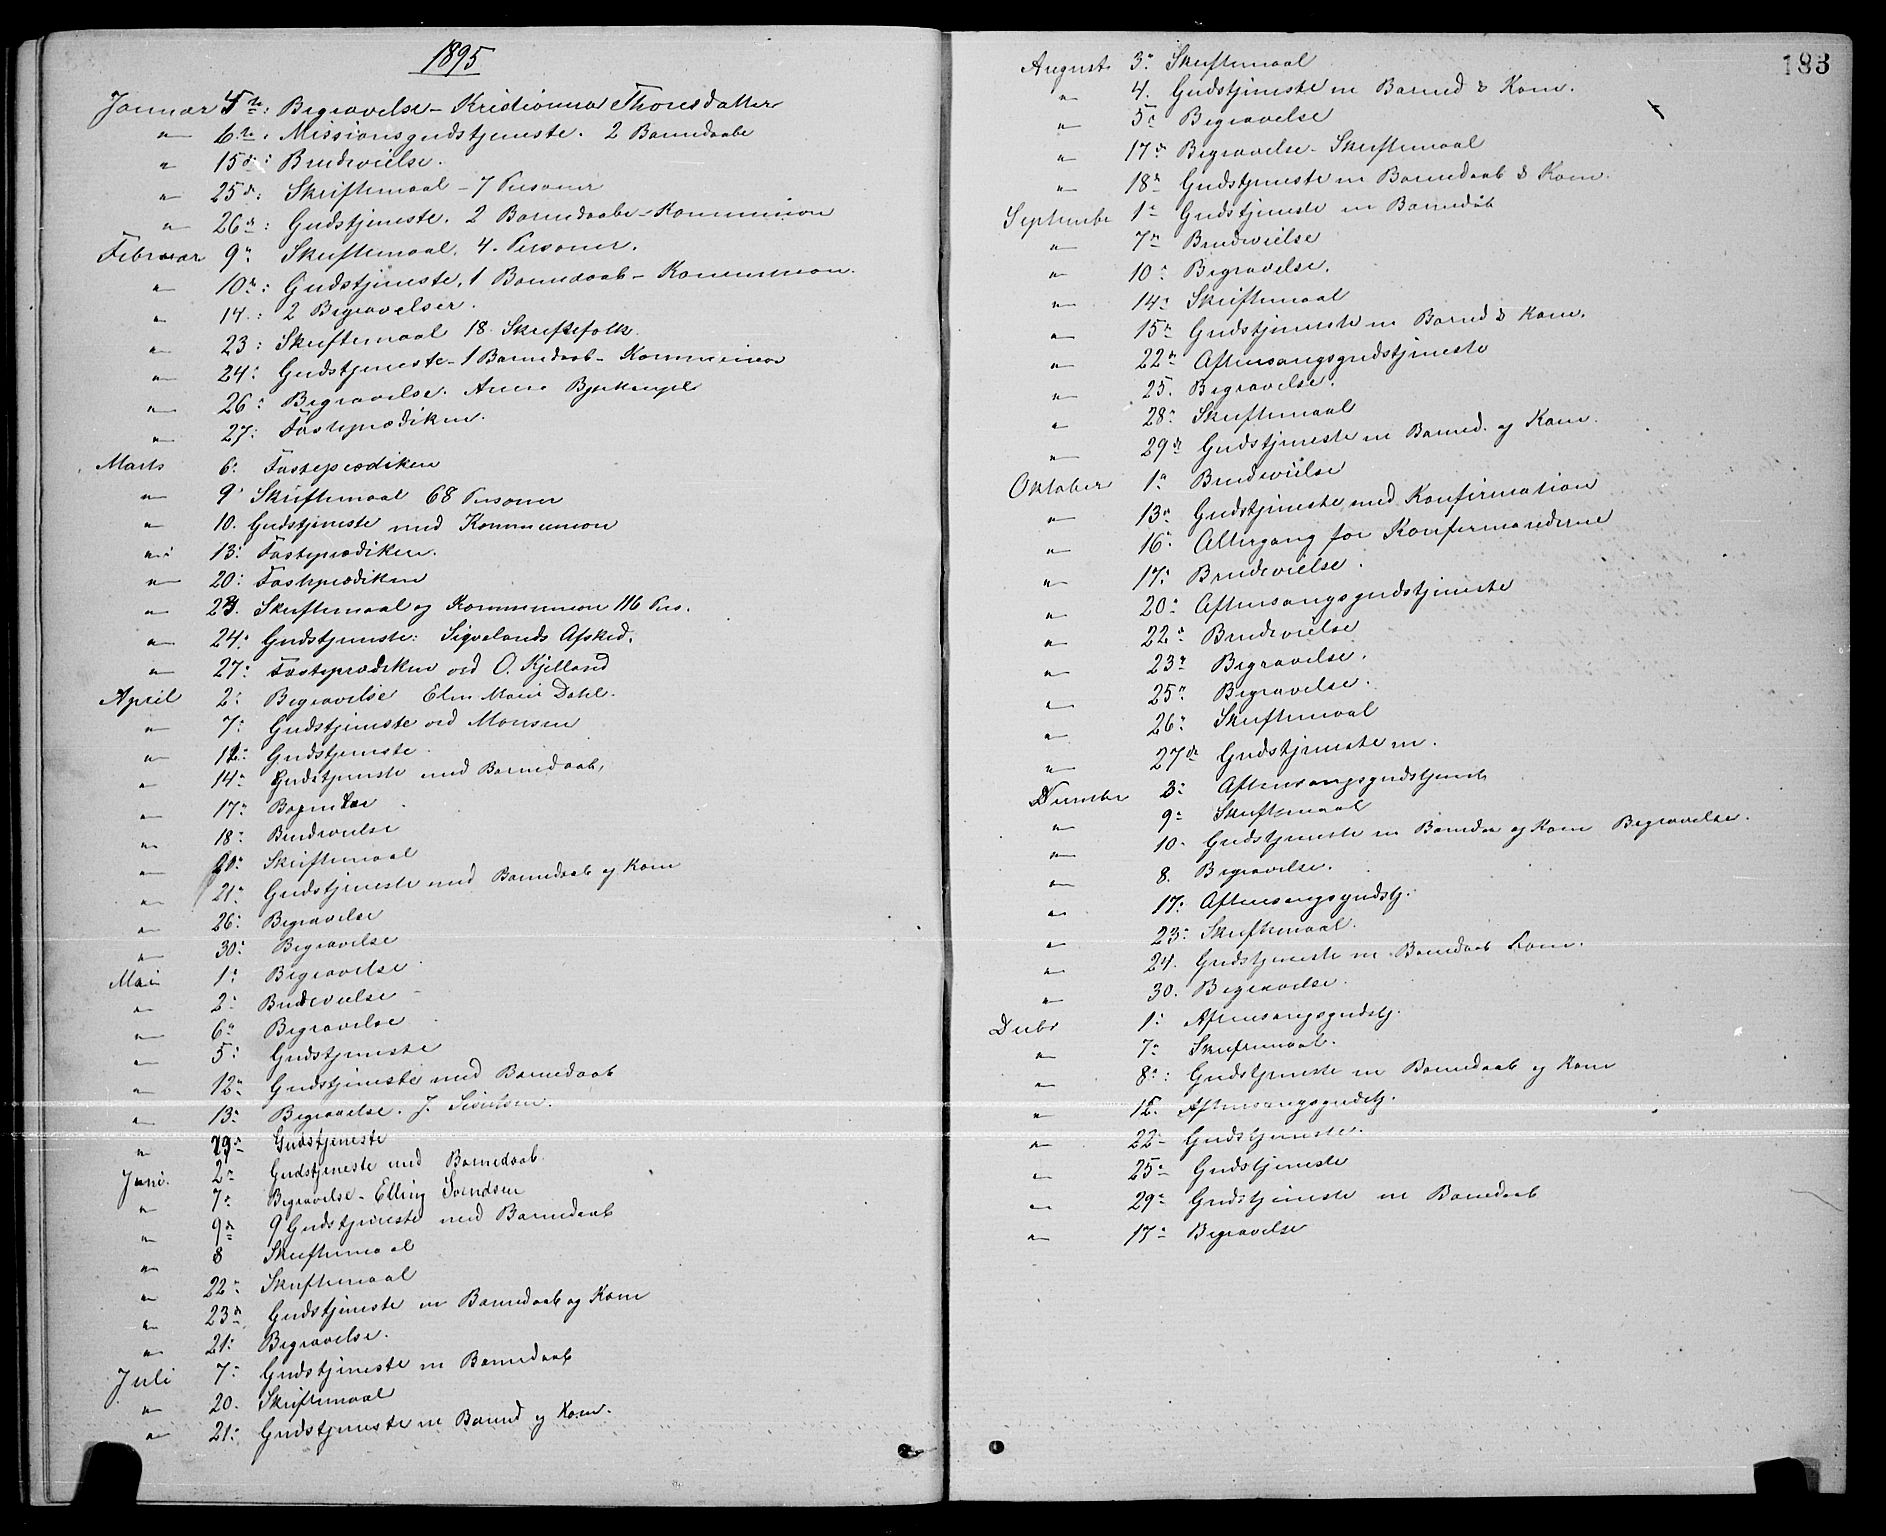 1895
Januar 5te: Begravelse – Kristianna Thorsdatter
" 6te: Missionsgudstjeneste. 2 Barnedaabe
" 15de: Brudevielse.
" 25d: Skriftemaal – 7 Personer
" 26n: Gudstjeneste. 2 Barnedaabe – Kommunion
Februar 9n Skriftemaal. 4. Personer.
" 10n: Gudstjeneste, 1 Barnedaab – Kommunion.
" 14.: 2 Begravelser.
" 23: Skriftemaal 18 Skriftefolk.
" 24: Gudstjeneste – 1 Barnedaab – Kommunion
" 26: Begravelse. Anne
" 27: Fasteprædiken.
Marts 6: Fasteprædiken
" 9' Skriftemaal 68 Personer
" 10. Gudstjeneste med Kommunion
" 13: Fasteprædiken.
" 20: Fasteprædiken
" 23. Skriftemaal og Kommunion 116 Pers.
" 24: Gudstjeneste: Sigvelands Afsked.
" 27: Fasteprædiken ved O. Kjelland
April 2: Begravelse Elen Marie Dahl.
" 7: Gudstjeneste ved Monsen
" 12: Gudstjeneste.
" 14n Gudstjeneste med Barnedaab,
" 17n
" 18: Brudevielse
" 20: Skriftemaal
" 21n Gudstjeneste med Barnedaab og Kom
" 26: Begravelse
" 30: Begravelse
Mai 1: Begravelse.
" 2: Brudevielse –
" 6n Begravelse
" 5: Gudstjeneste
" 12n Gudstjeneste med Barnedaab
" 13: Begravelse. J. Sivertsen.
" 19n Gudstjeneste
Juni. 2n Gudstjeneste med Barnedaab
" 7: Begravelse – Elling Svendsen
" 9n 9 Gudstjeneste med Barnedaab
" 8 Skriftemaal
" 22n Skriftemaal
" 23n Gudstjeneste m Barnedaab og Kom
" 21: Begravelse.
Juli 7: Gudstjeneste m Barnedaab
" 20. Skriftemaal
" 21: Gudstjeneste m Barned og Kom.
183
August 3n Skriftemaal
" 4. Gudstjeneste m Barned & Kom.
" 5: Begravelse
" 17n Begravelse – Skriftemaal
" 18n Gudstjeneste m Barnedaab & Kom.
Septembr 1n Gudstjeneste m Barnedåb
" 7n Brudevielse
" 10: Begravelse.
" 14: Skriftemaal
" 15n Gudstjeneste m Barned & Kom.
" 22n Aftensangsgudstjeneste
" 25. Begravelse.
" 28n Skriftemaal
" 29de Gudstjeneste m Barned. og Kom.
Oktober 1n Brudevielse
" 13n Gudstjeneste med Konfirmation
" 16: Altergang for Konfirmanderne
" 17: Brudevielse.
" 20: Aftensangsgudstjeneste
" 22n Brudevielse
" 23n Begravelse.
" 25n Begravelse.
" 26n Skriftemaal
" 27de Gudstjeneste m.
Novembr 3: Aftensangsgudstjeneste
" 9n Skriftemaal
" 10. Gudstjeneste m Barnedaa og Kom Begravelse.
" 8. Begravelse.
" 17: Aftensangsgudstj.
" 23: Skriftemaal.
" 24. Gudstjeneste m Barnedaab Kom.
" 30. Begravelse.
Decbr 1: Aftensangsgudstj.
" 7n Skriftemaal.
" 8n: Gudstjeneste m Barnedaab og Kom
" 15. Aftensangsgudstj.
" 22– Gudstjeneste.
" 25n Gudstjeneste
" 29n Gudstjeneste m Barnedaab
" 17n Begravelse